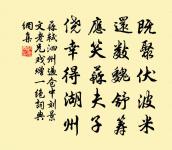 既聚伏波米
還數魏舒籌
應笑蘇夫子
僥幸得湖州
蘇軾泗州過倉中劉景
文老兄戲贈一絕詞典
網集